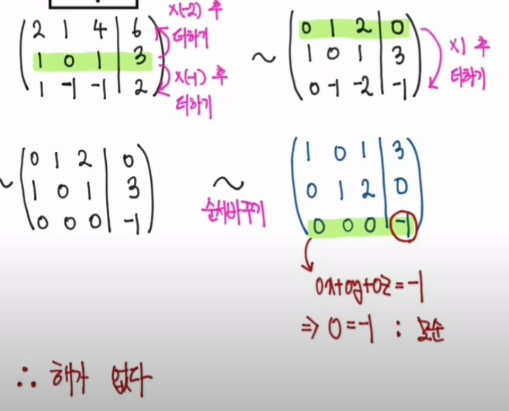 2 1 4 | 6
1 0 1 | 3
1 -1 -1 | 2
x(-2) 후 더하기
x(-1) 후 더하기
~
0 1 2 | 0
1 0 1 | 3
0 -1 -2 | -1
x1 후 더하기
~
0 1 2 | 0
1 0 1 | 3
0 0 0 | -1
~
순서바꾸기
1 0 1 | 3
0 1 2 | 0
0 0 0 | -1
0x+0y+0z=-1
⇒ 0=-1 : 모순
∴ 해가 없다